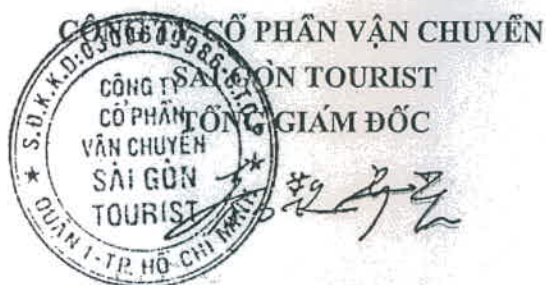 CÔNG TY CỔ PHẦN VẬN CHUYỂN
SÀI GÒN TOURIST
TỔNG GIÁM ĐỐC
CÔNG TY
CỔ PHẦN
VẬN CHUYỂN
SÀI GÒN
TOURIST
QUẬN 1-TP. HỒ CHÍ MINH